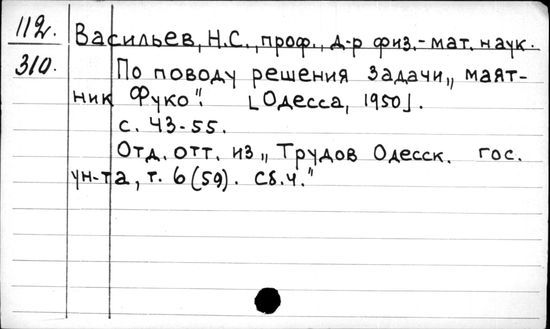 112.
310.
Васильев, Н.С., проф., д-р физ.-мат. наук.
По поводу решения задачи „маят-
ник Фуко“. [Одесса, 1950].
с. 43-55.
Отд. отт. из „Трудов Одесск. гос.
ун-та, т. 6 (59). Сб. 4."